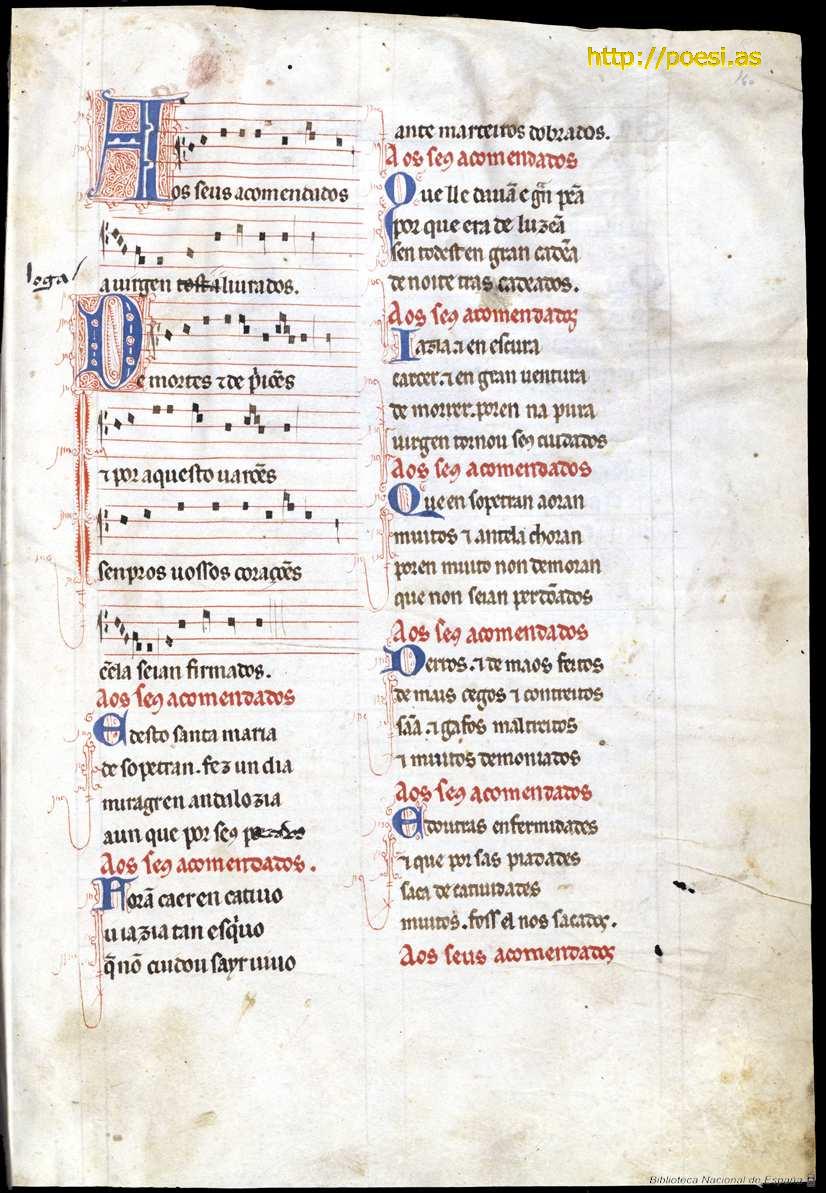 http://poesi.as
Aos seus acomendados
a uirgen tosta liurados.
loga
De mortes ⁊ de p'iões
⁊ por aquesto uarões
senpros uossos corações
eēla seian firmados.
Aos seꝯ acomendados
E desto santa maria
de sopetran. fez un dia
miragr en andaluzia
a un que por seꝯ
Aos seꝯ acomendados.
Forā caer en catiuo
u iazia tan esq'uo
q̄ nō cuidou sayr uiuo
ante marteiros dobrados.
Aos seꝯ acomendados
Que lle dauā e grā pēa
por que era de luzēa
sen todest en gran cadēa
de noite tras cadeados.
Aos seꝯ acomendados
Iazia. ⁊ en escura
carcer. ⁊ en gran uentura
de morrer. poren na pura
uirgen tornou seꝯ cuidados
Aos seꝯ acomendados
Que en sopetran aoran
muitos ⁊ antela choran
poren muito non demoran
que non seian perdōados
Aos seꝯ acomendados
Derros. ⁊ de maos feitos
de mais cegos ⁊ contreitos
sāa. ⁊ gafos maltreitos
⁊ muitos demoniados
Aos seꝯ acomendados
E doutras enfermidades
⁊ que por sas piadades
saca de catiuidades
muitos. foss el nos sacados.
Aos seus acomendados
Biblioteca Nacional de España